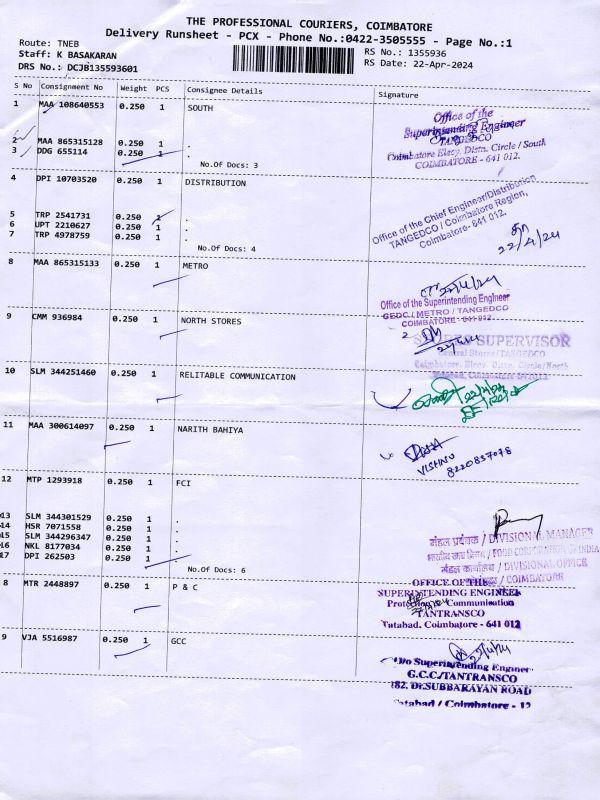 THE PROFESSIONAL COURIERS, COIMBATORE
Delivery Runsheet - PCX - Phone No.:0422-3505555 - Page No.:1
Route: TNEB RS No.: 1355936
Staff: K BASAKARAN RS Date: 22-Apr-2024
DRS No.: DCJB135593601
S No Consignment No Weight PCS Consignee Details Signature
1 MAA 108640553 0.250 1 SOUTH
Office of the
Superintending Engineer
TANGEDCO
Coimbatore Elecy. Distn. Circle / South
COIMBATORE - 641 012.
2 MAA 865315128 0.250 1 .
3 DDG 655114 0.250 1 .
No.Of Docs: 3
4 DPI 10703520 0.250 1 DISTRIBUTION
Office of the Chief Engineer/Distribution
TANGEDCO / Coimbatore Region,
Coimbatore- 641 012.
22/4/24
5 TRP 2541731 0.250 1 .
6 UPT 2210627 0.250 1 .
7 TRP 4978759 0.250 1 .
No.Of Docs: 4
8 MAA 865315133 0.250 1 METRO
Office of the Superintending Engineer
GEDC / METRO / TANGEDCO
COIMBATORE - 641 012.
9 CMM 936984 0.250 1 NORTH STORES
SUPERVISOR
Central Stores/TANGEDCO
Coimbatore. Elecy. Distn. Circle/North
10 SLM 344251460 0.250 1 RELITABLE COMMUNICATION
11 MAA 300614097 0.250 1 NARITH BAHIYA
VISHNU
8220857078
12 MTP 1293918 0.250 1 FCI
13 SLM 344301529 0.250 1 .
14 HSR 7071558 0.250 1 .
15 SLM 344296347 0.250 1 .
16 NKL 8177034 0.250 1 .
17 DPI 262503 0.250 1 .
No.Of Docs: 6
मंडल प्रबंधक / DIVISIONAL MANAGER
भारतीय खाद्य निगम / FOOD CORPORATION OF INDIA
मंडल कार्यालय / DIVISIONAL OFFICE
/ COIMBATORE
8 MTR 2448897 0.250 1 P & C
OFFICE OF THE
SUPERINTENDING ENGINEER
Protection Communication
TANTRANSCO
Tatabad, Coimbatore - 641 012
9 VJA 5516987 0.250 1 GCC
O/o Superintending Engineer
G.C.C./TANTRANSCO
182, Dr.SUBBARAYAN ROAD
Tatabad / Coimbatore - 12